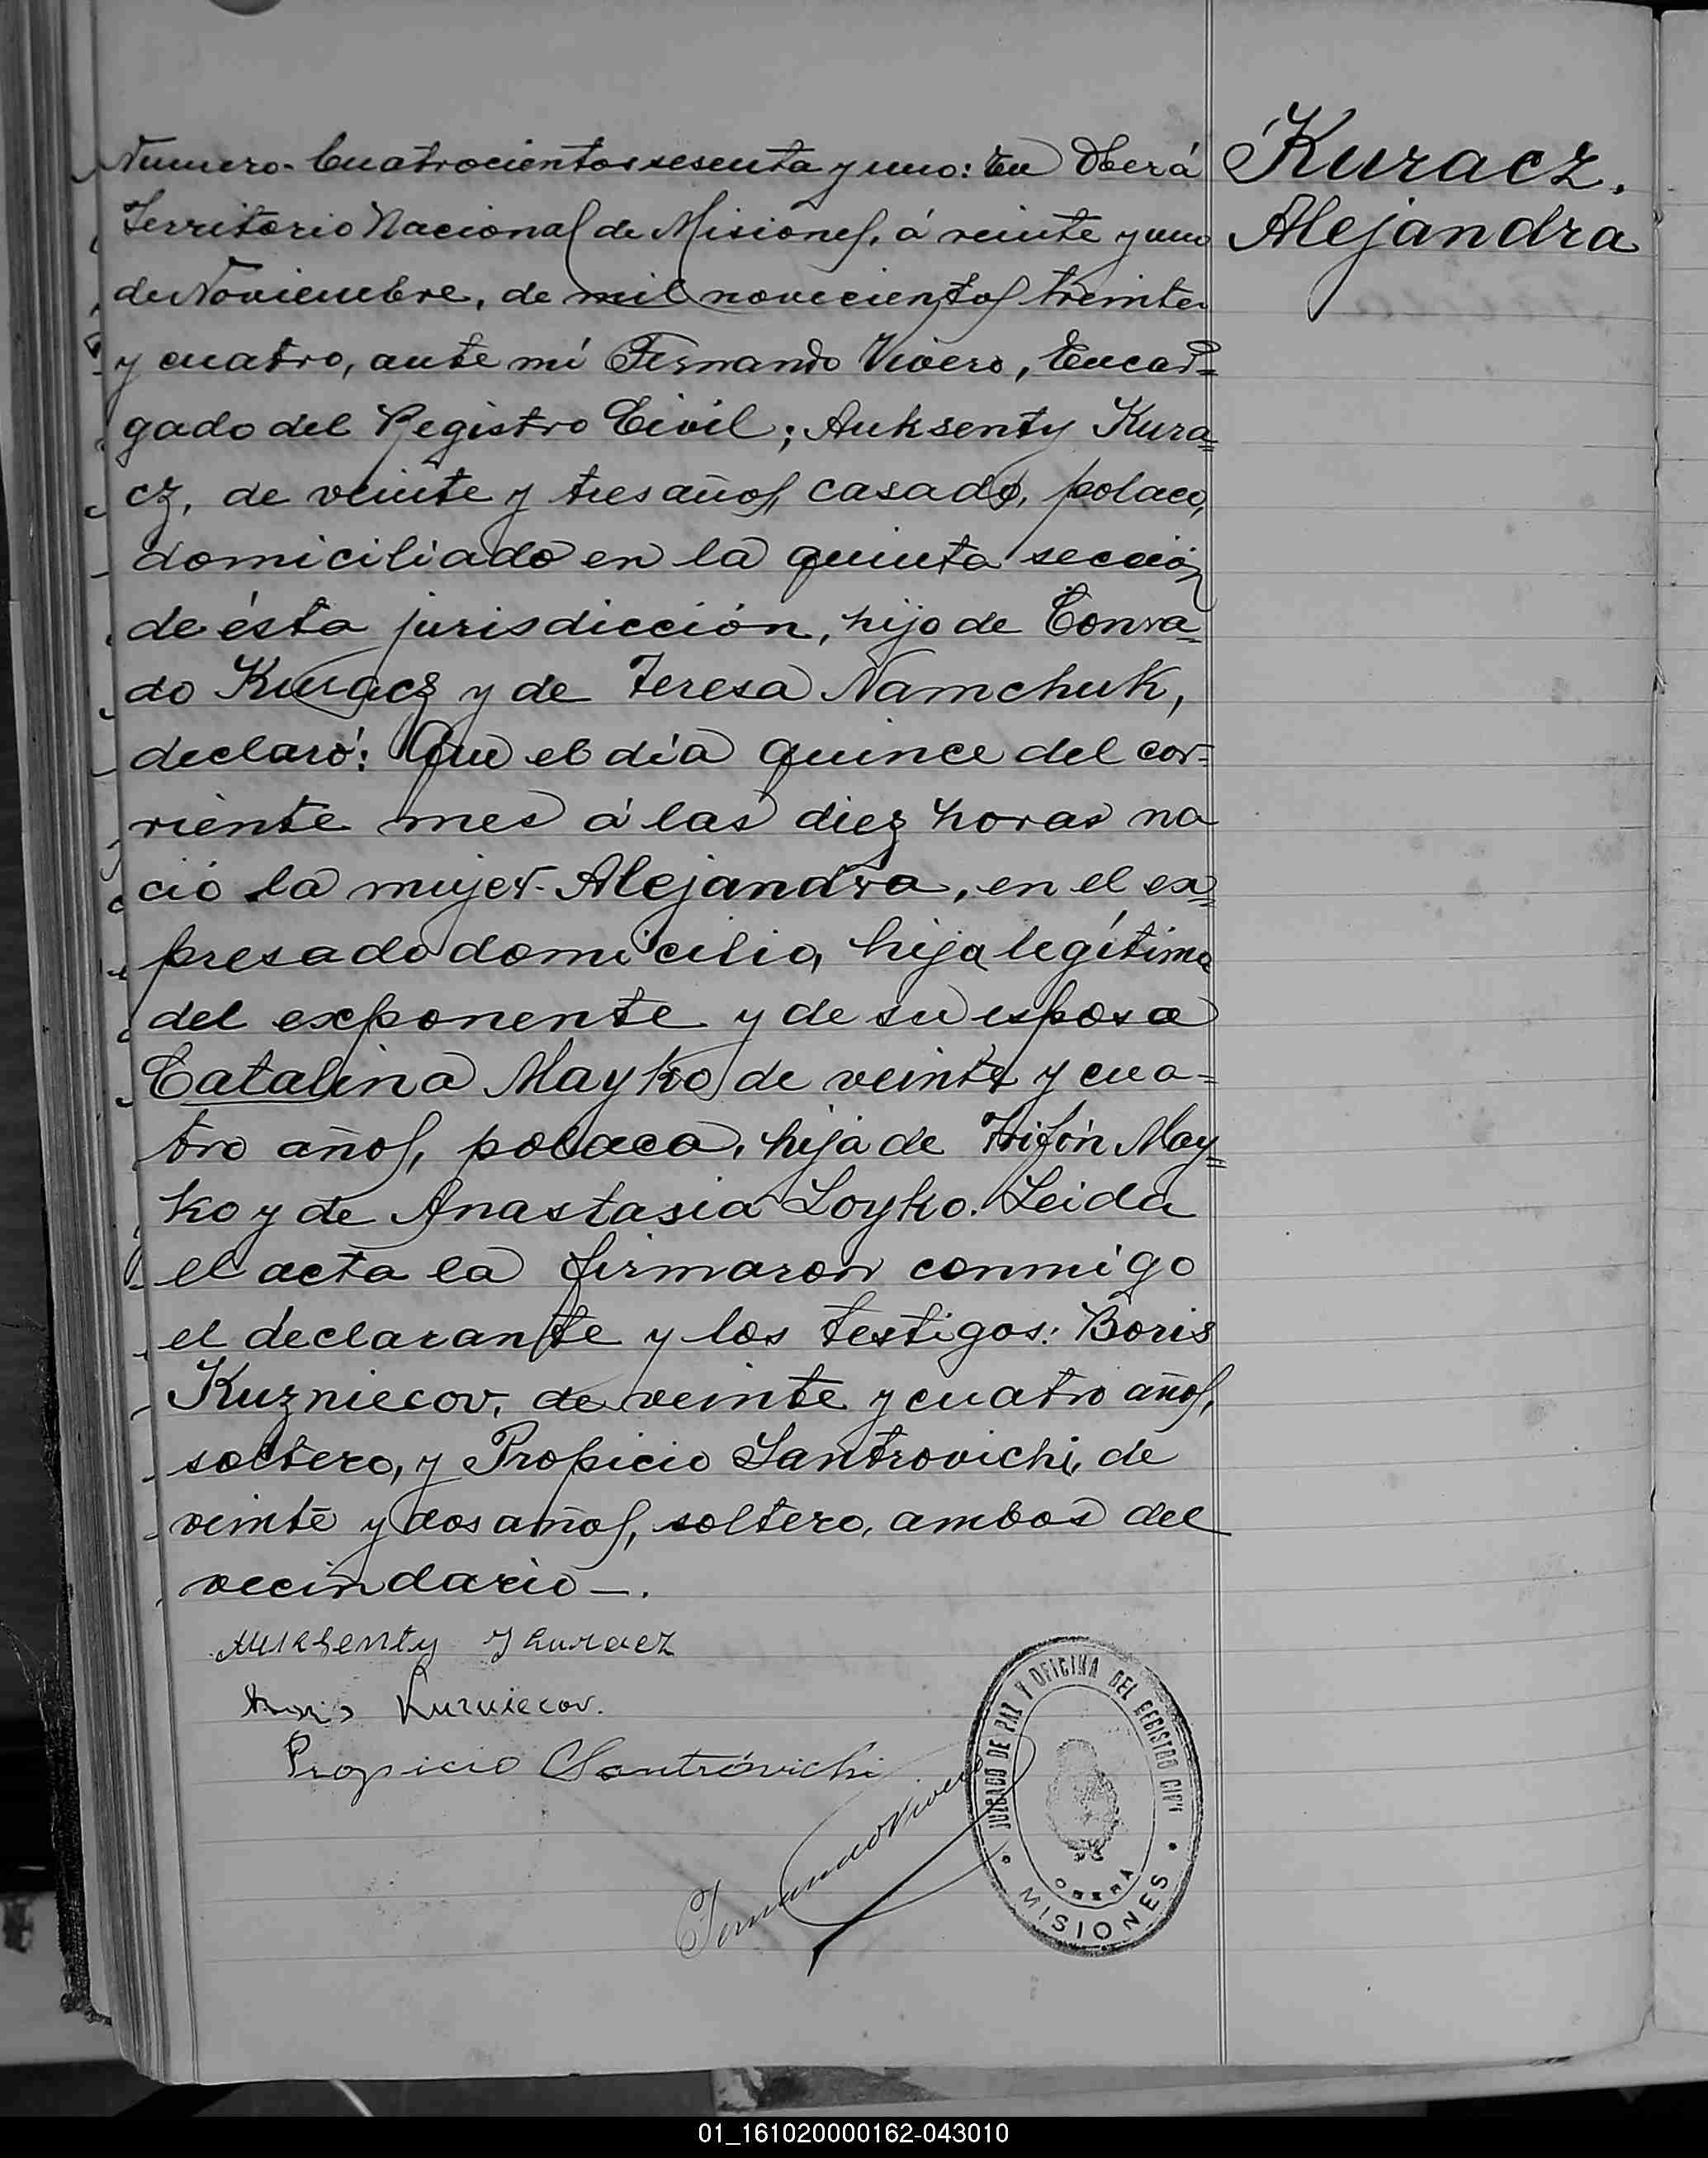 Numero Cuatrocientos sesenta y uno: En Oberá
Territorio Nacional de Misiones, á veinte y uno
de Noviembre, de mil novecientos treinta
y cuatro, ante mí Fernando Vivero, Encar=
gado del Registro Civil; Auksenty Kura=
cz, de veinte y tres años, casado, polaco,
domiciliado en la quinta sección
de ésta jurisdicción, hijo de Conra=
do Kuracz y de Teresa Namchuk,
declaró: Que el día quince del cor=
riente mes á las diez horas na
ció la mujer Alejandra, en el ex=
presado domicilio, hija legítima
del exponente y de su esposa
Catalina Mayko de veinte y cua=
tro años, polaca, hija de Trifón May=
ko y de Anastasia Loyko. Leida
el acta la firmaron conmigo
el declarante y los testigos: Boris
Kuzniecov, de veinte y cuatro años,
soltero, y Propicio Santrovichi, de
veinte y dos años, soltero, ambos del
vecindario—.
Kuracz,
Alejandra
Auksenty Kuracz
Boris Kuzniecov.
Propicio Santróvichi
Fernando Vivero
JUZGADO DE PAZ Y OFICINA DEL REGISTRO CIVIL
OBERÁ
MISIONES
01_161020000162-043010